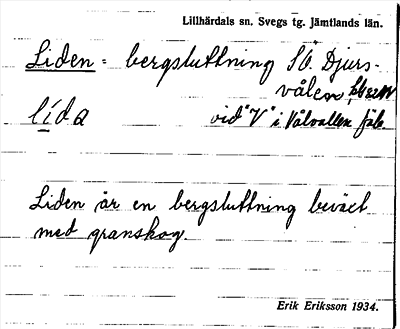 Lillhärdals sn. Svegs tg. Jämtlands län.
Liden = bergsluttning SO. Djurs-
vålen,
lída vid "V" i Vålvallen fäb.
Liden är en bergsluttning beväxt
med granskog.
Erik Eriksson 1934.